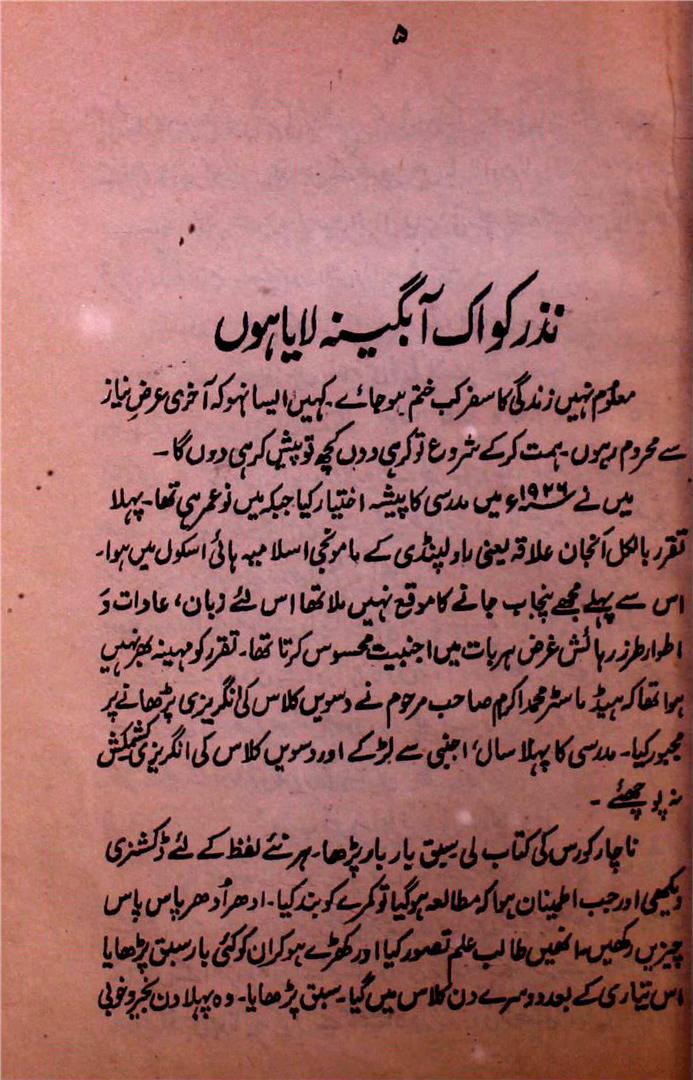 ۵
نذر کو اک آبگینہ لایا ہوں
معلوم نہیں زندگی کا سفر کب ختم ہو جائے۔ کہیں ایسا نہو کہ آخری عرضِ نیاز
سے محروم رہوں۔ ہمت کرکے شروع تو کر ہی دوں کچھ تو پیش کر ہی دوں گا۔
میں نے ۱۹۲۶ء میں مدرسی کا پیشہ اختیار کیا جبکہ میں نوعمر ہی تھا۔ پہلا
تقرر بالکل انجان علاقہ یعنی راولپنڈی کے مامونجی اسلامیہ ہائی اسکول میں ہوا۔
اس سے پہلے مجھے پنجاب جانے کا موقع نہیں ملا تھا اس لئے زبان، عادات و
اطوار طرز رہائش غرض ہر بات میں اجنبیت محسوس کرتا تھا۔ تقرر کو مہینہ بھر نہیں
ہوا تھا کہ ہیڈ ماسٹر محمد اکرم صاحب مرحوم نے دسویں کلاس کی انگریزی پڑھانے پر
مجبور کیا۔ مدرسی کا پہلا سال، اجنبی سے لڑکے اور دسویں کلاس کی انگریزی کشمکش
نہ پوچھئے۔
ناچار کورس کی کتاب لی سبق بار بار پڑھا۔ ہر نئے لفظ کے لئے ڈکشنری
دیکھی اور جب اطمینان ہوا کہ مطالعہ ہو گیا تو کمرے کو بند کیا۔ ادھر اُدھر پاس پاس
چیزیں رکھیں، انھیں طالب علم تصور کیا اور کھڑے ہو کر ان کو کئی بار سبق پڑھایا
اس تیاری کے بعد دوسرے دن کلاس میں گیا۔ سبق پڑھایا۔ وہ پہلا دن بخیر و خوبی